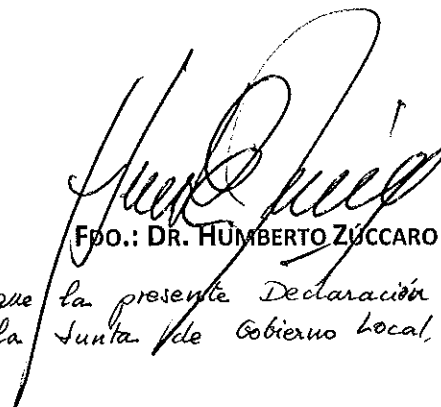 FDO.: DR. HUMBERTO ZÚCCARO
que la presente Declaración
la Junta de Gobierno Local,